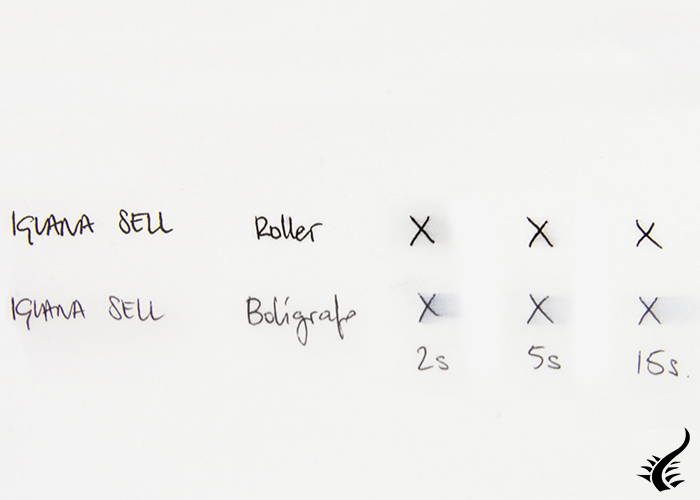 IGUANA SELL Roller X X X
IGUANA SELL Bolígrafo X X X
2s 5s 15s.